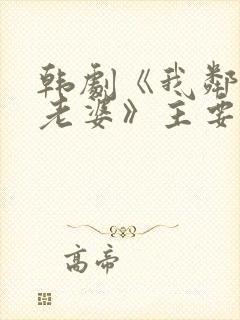 韩剧《我邻
老婆》主要
高帝